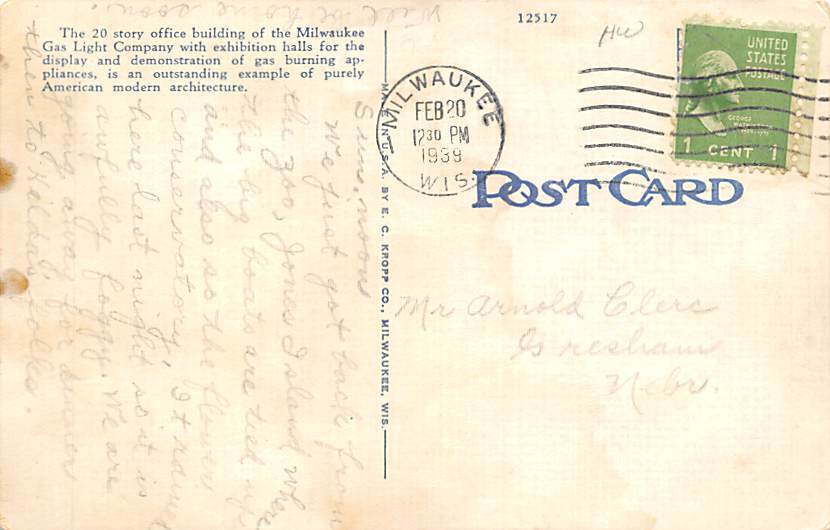 Will be home soon.
12517
HW
The 20 story office building of the Milwaukee
Gas Light Company with exhibition halls for the
display and demonstration of gas burning ap-
pliances, is an outstanding example of purely
American modern architecture.
MADE IN U.S.A. BY E. C. KROPP CO., MILWAUKEE, WIS.
MILWAUKEE
FEB 20
12 30 PM
1939
WIS.
UNITED
STATES
POSTAGE
GEORGE
WASHINGTON
1 CENT 1
POST CARD
Sun. noon
We just got back from
the Zoo, Jones Island where
the big boats are tied up
and also so the flower
conservatory. It rained
here last night so it is
awfully foggy. We are
going away for dinner
then to Hilda's folks.
Mr Arnold Clerc
Gresham
Nebr.